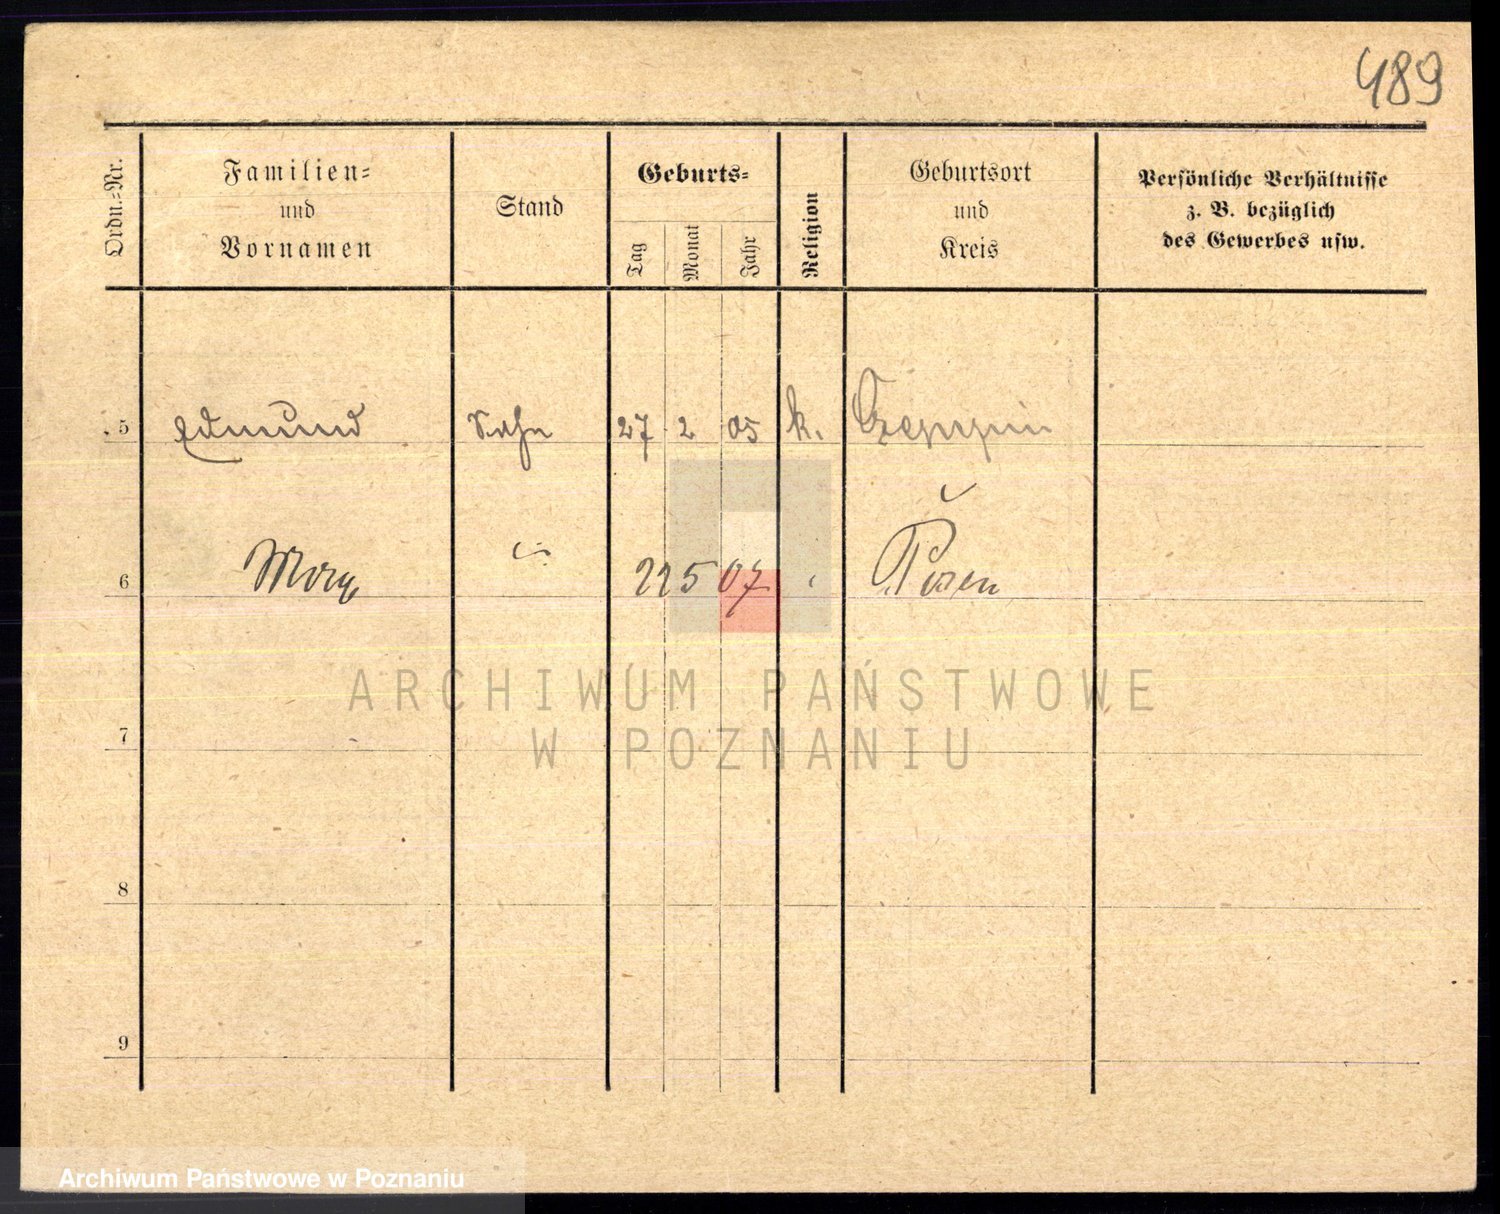 489
Ordn.-Nr.
Familien-
und
Vornamen
Stand
Geburts-
Tag
Monat
Jahr
Religion
Geburtsort
und
Kreis
Persönliche Verhältnisse
z. B. bezüglich
des Gewerbes usw.
5 Edmund Sohn 27 2 05 k.
6 22 5 07 Posen
ARCHIWUM PAŃSTWOWE
W POZNANIU
7
8
9
Archiwum Państwowe w Poznaniu